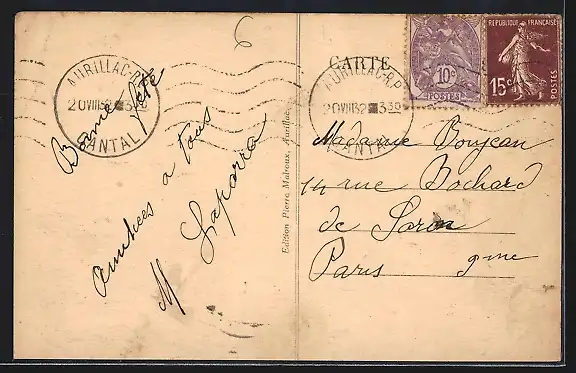 6
AURILLAC-R.P.
20 VIII 32 3 30
CANTAL
Bonne fête
amitiées a tous
M Laparra
Edition Pierre Malroux, Aurillac
CARTE
AURILLAC-R.P.
20 VIII 32 3 30
CANTAL
10c
POSTES
REPUBLIQUE FRANÇAISE
15c
POSTES
Madame Boujean
14 rue Bochard
de Saron
Paris 9me